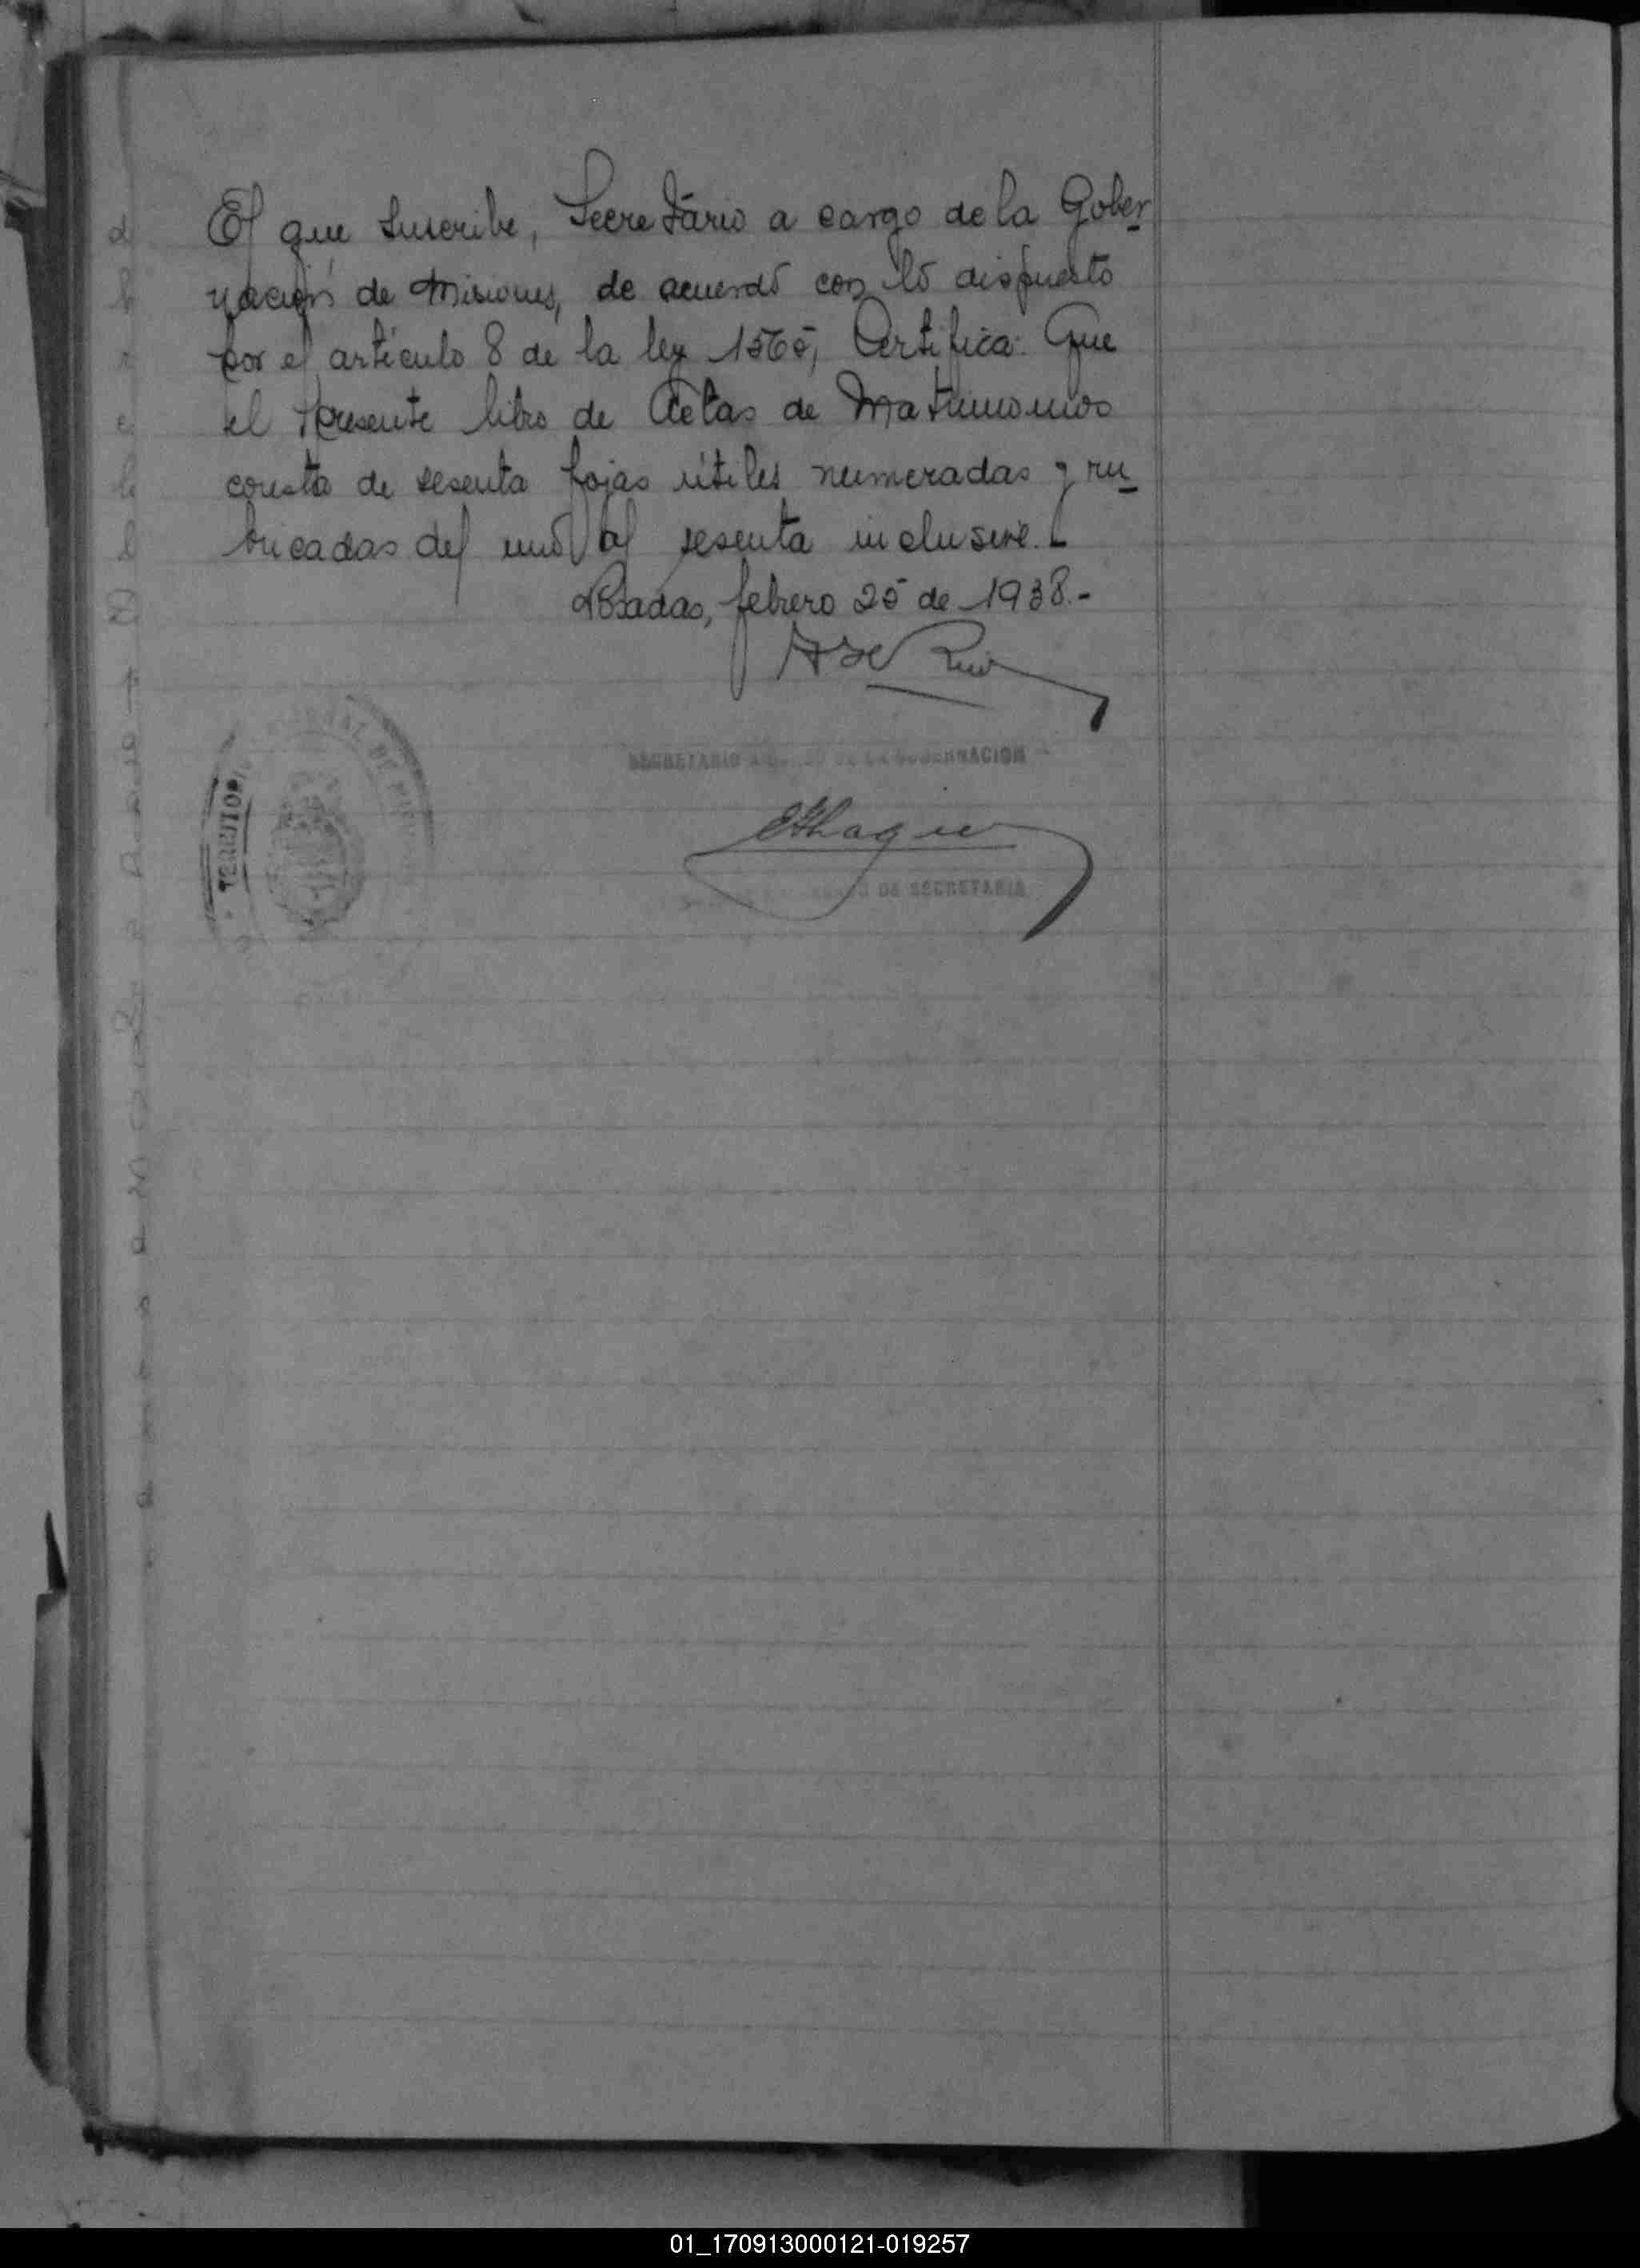 El que suscribe, Secretário a cargo de la Gober-
nación de Misiones, de acuerdo con lo dispuesto
por el artículo 8 de la ley 1565, Certifica: Que
el presente libro de Actas de Matrimonios
consta de sesenta fojas útiles numeradas y ru-
bricadas del uno al sesenta inclusive.
Posadas, febrero 25 de 1938.-
SECRETARIO A CARGO DE LA GOBERNACION
DE SECRETARIA
TERRITORIO
01_170913000121-019257